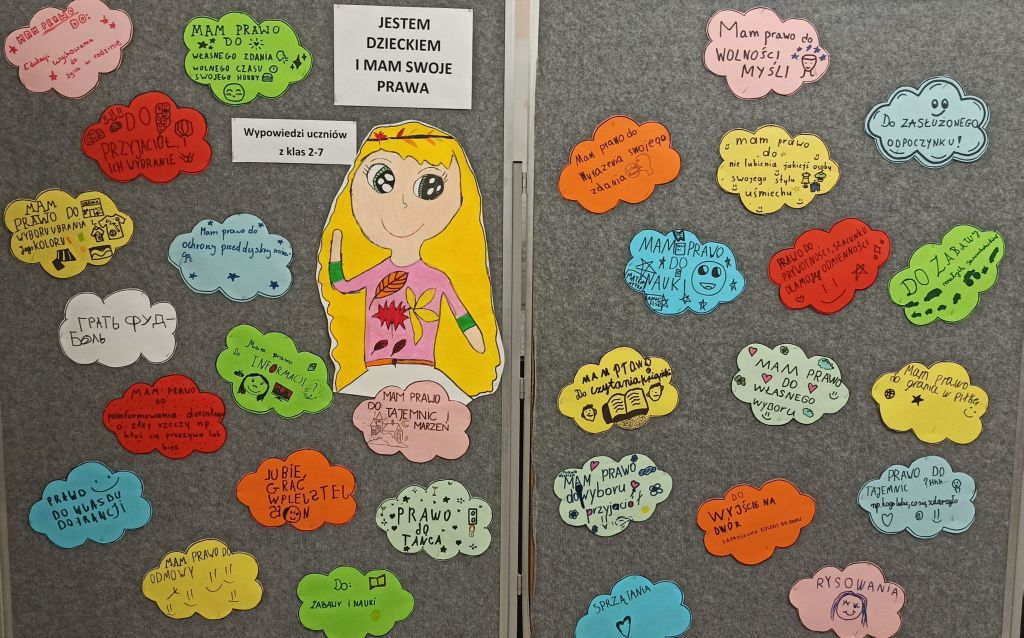 MAM PRAWO
DO:
Edukacji wychowania
do
życia w rodzinie
MAM PRAWO
DO
WŁASNEGO ZDANIA
WOLNEGO CZASU
SWOJEGO HOBBY
JESTEM
DZIECKIEM
I MAM SWOJE
PRAWA
DO
PRZYJACIÓŁ I
ICH WYBRANIE
Wypowiedzi uczniów
z klas 2-7
MAM
PRAWO DO
WYBORU UBRANIA
jego KOLORU
Mam prawo do
ochrony przed dyskrymina-
ГРАТЬ ФУД-
БОЛЬ
Mam prawo
Do INFORMACJI
MAM PRAWO
DO
poinformowania dorosłego
o złej rzeczy np.
ktoś się przezywa lub
bije
MAM PRAWO
DO TAJEMNIC I
MARZEŃ
PRAWO
DO WJASDU
DO FRANCJI
LUBIE
GRAĆ
W PLEISTEJ
PRAWO
do
TAŃCA
MAM PRAWO DO
ODMOWY
Do:
ZABAWY I NAUKI
Mam prawo do
WOLNOŚCI
MYŚLI
Do ZASŁUŻONEGO
ODPOCZYNKU!
Mam prawo do
Wyrażenia swojego
zdania
mam prawo
do
nie lubienia jakiejś osoby
swojego stylu
uśmiechu
MAM PRAWO
DO
NAUKI
PRAWO DO
PRYWATNOŚCI, SZACUNKU
DLA MOJEJ ODMIENNOŚCI
DO ZABAWY
MAM PRAWO
Do czytania książki
MAM PRAWO
DO
WŁASNEGO
WYBORU
Mam prawo
do grania w Piłkę
MAM PRAWO
do wyboru
przyjaciół
DO
WYJŚCIO NA
DWÓR
ZAPROSZENIA KOLEGI DO DOMU
PRAWO DO
TAJEMNIC
np. kogo lubię, co się zdarzyło
SPRZĄTANIA
RYSOWANIA